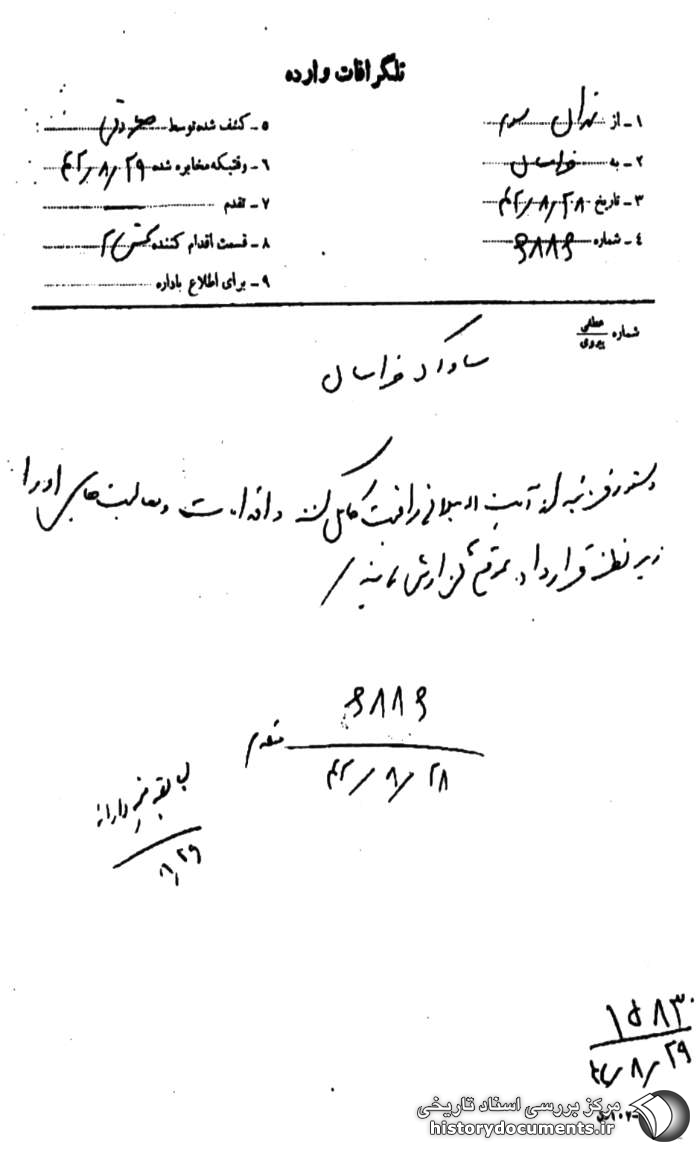 تلگرافات وارده
۱ - از تهران سوم
۲ - به خراسان
۳ - تاریخ ۴۲/۸/۲۸
۴ - شماره ۹۸۸۹
۵ - کشف شده توسط صدوقی
۶ - وقتیکه مخابره شده ۴۲/۸/۲۹
۷ - تقدم
۸ - قسمت اقدام کننده بخش ۲
۹ - برای اطلاع باداره
شماره عطفی پیروی
ساواک خراسان
دستور فرمائید آیت اله میلانی را مراقبت کامل کنند و اقدامات و فعالیت‌های او را
زیر نظر قرار داده بموقع گزارش نمایند /
۹۸۸۹
۴۲/۸/۲۸
مقدم
۸/۲۹
۱۵۸۳۰
۴۲/۸/۲۹
مرکز بررسی اسناد تاریخی
historydocuments.ir